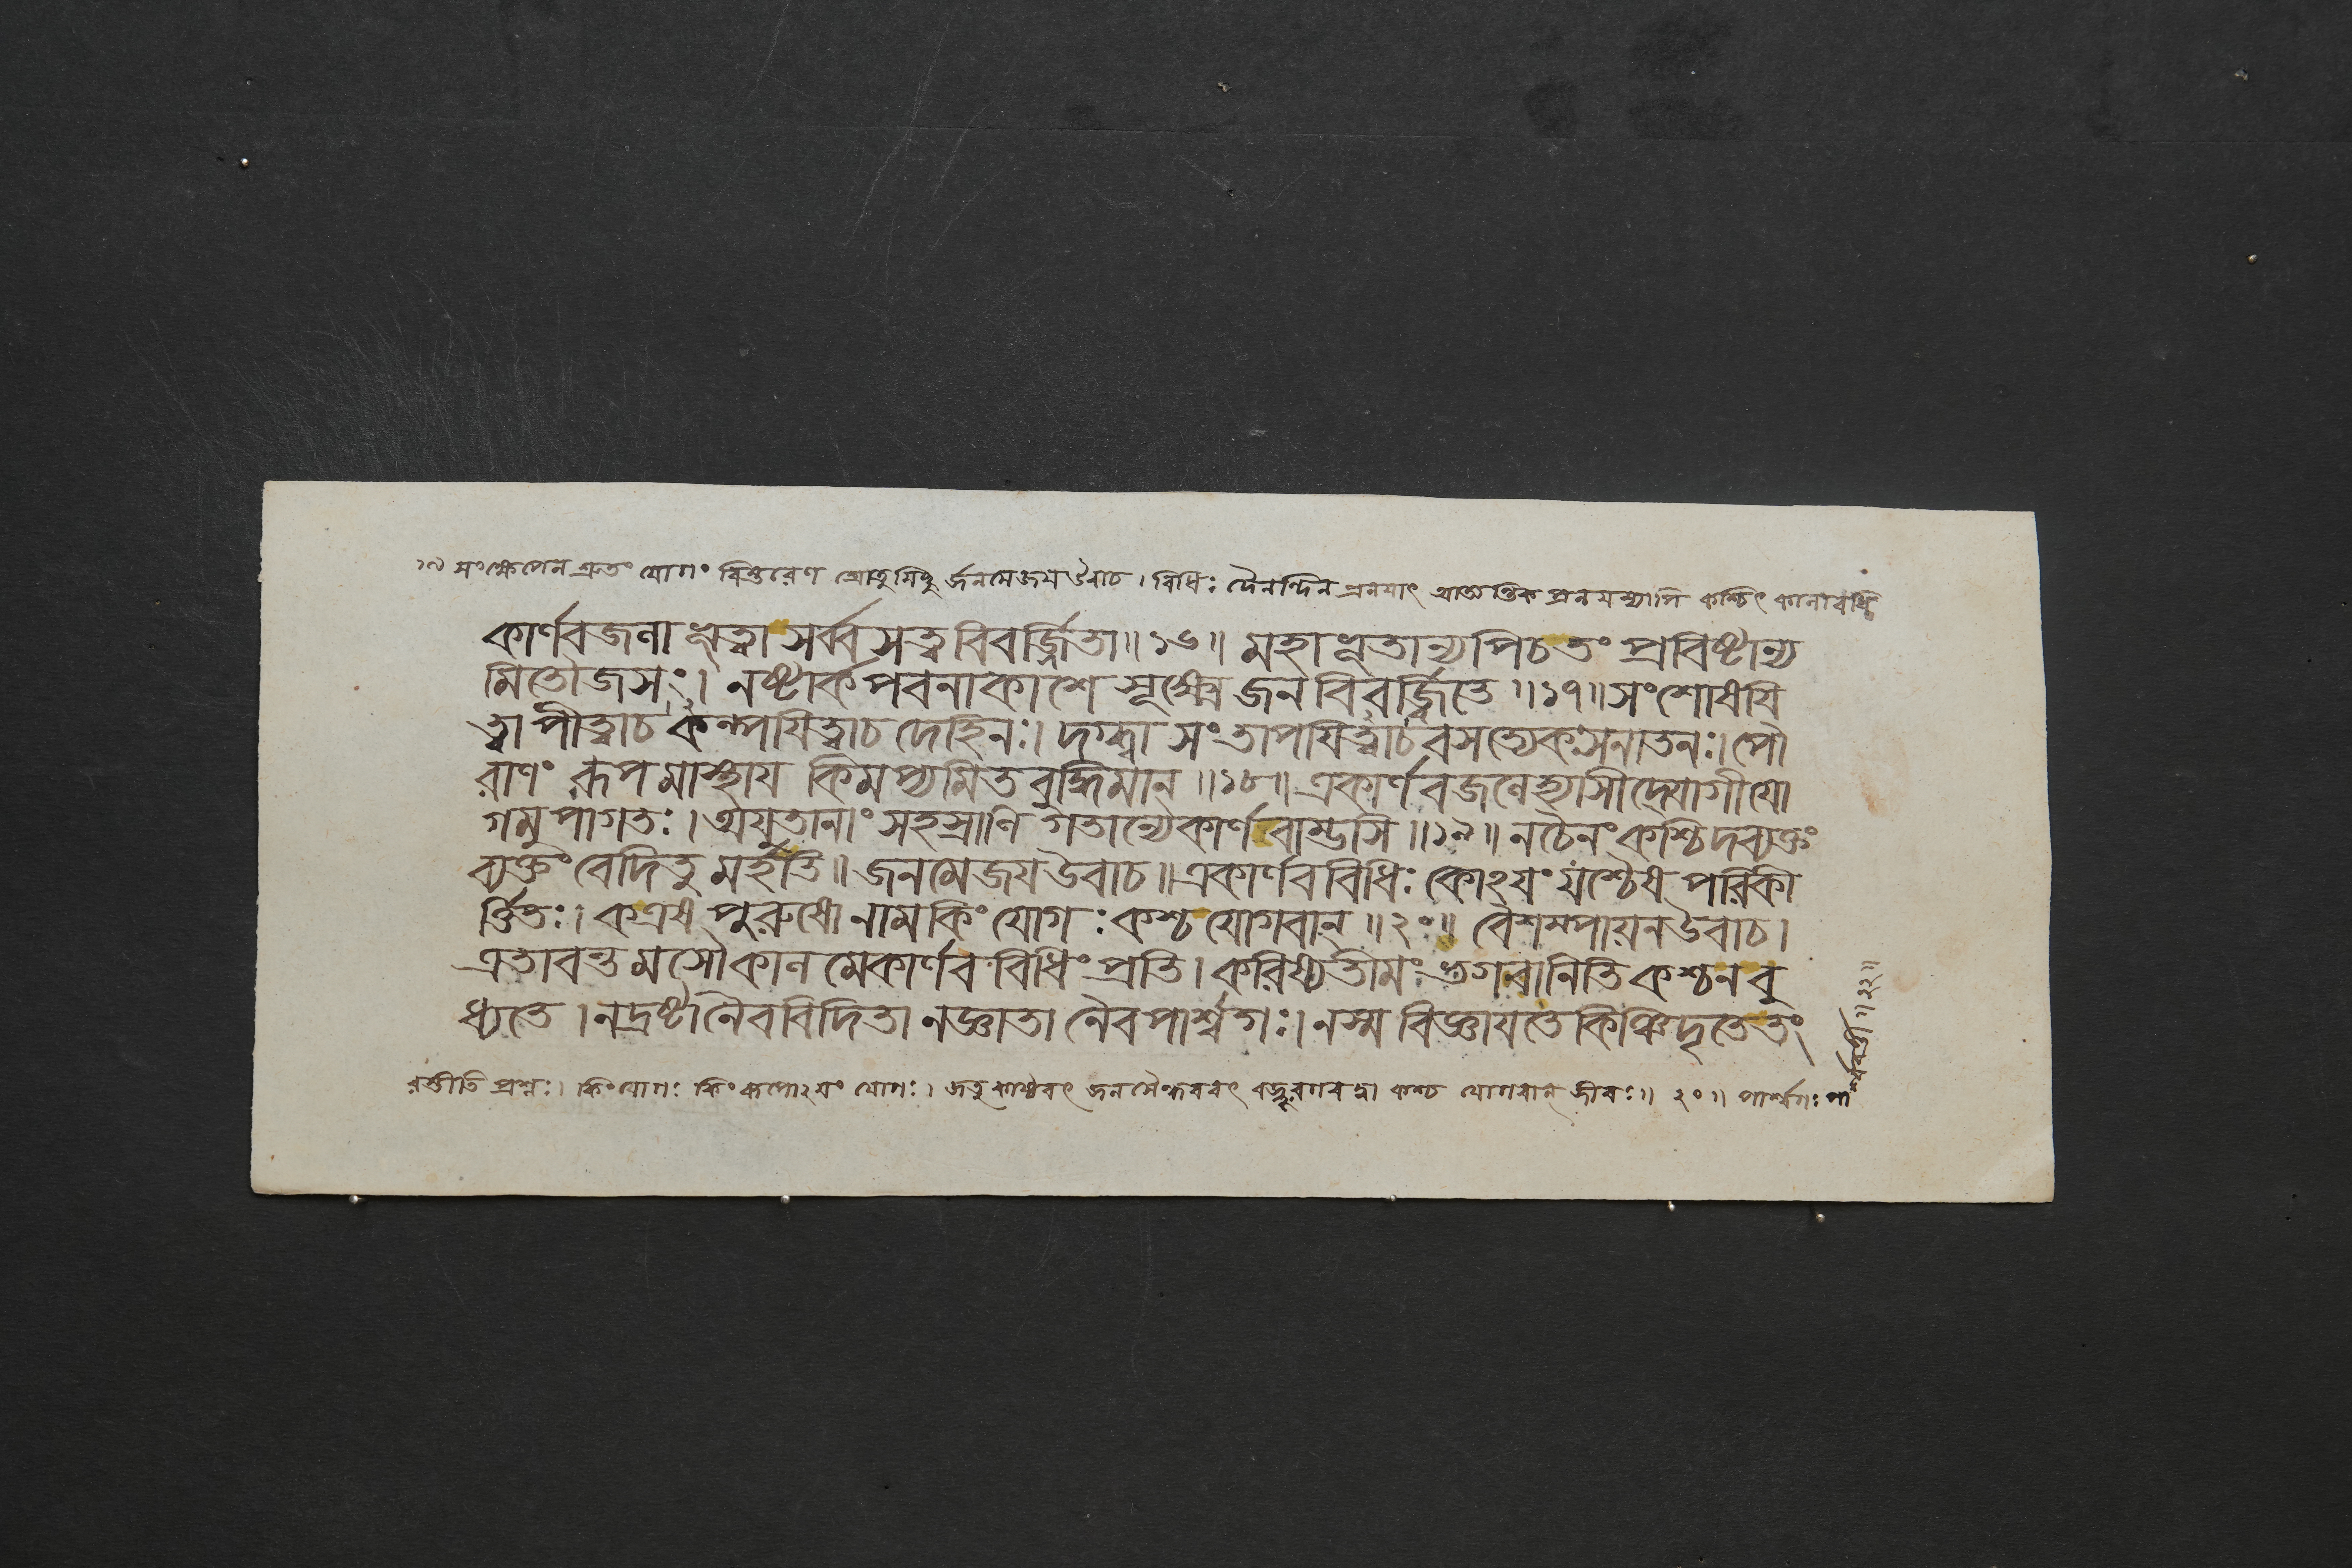 ১৯ সংক্ষেপেন শ্রুতং যোগং বিস্তরেণ শ্রোতুমিচ্ছু র্জনমেজয়উবাচ । বিধিঃ দৈনন্দিন প্রলয়াৎ আত্যন্তিক প্রলয়স্যাপি কশ্চিৎ কালাবধি
কার্ণবজলা ভূত্বা সর্ব্ব সত্ত্ব বিবর্জ্জিতা॥ ১৬॥ মহাভূতান্যপিচ তং প্রবিষ্টান্য
মিতৌজসং। নষ্টার্ক পবনাকাশে সূক্ষ্মে জন বিবর্জ্জিতে ॥১৭॥ সংশোষয়ি
ত্বা পীত্বাচ কম্পয়িত্বাচ দেহিনঃ। দগ্ধ্বা সংতাপয়িত্বাচ বসত্যেকঃ সনাতনঃ। পৌ
রাণং রূপ মাস্থায় কিমপ্যমিত বুদ্ধিমান্ ॥১৮॥ একার্ণবজলেহ্যাসীদ্যোগী যো
গমুপাগতঃ। অযুতানাং সহস্রাণি গতান্যেকার্ণবাম্ভসি॥১৯॥ নচৈনং কশ্চিদব্যক্তং
ব্যক্তং বেদিতু মর্হতি॥ জনমেজয় উবাচ॥ একার্ণব বিধিঃ কোঽয়ং যশ্চৈষ পরিকী
র্ত্তিতঃ। কএষ পুরুষো নাম কিং যোগঃ কশ্চ যোগবান্ ॥ ২০॥ বৈশম্পায়ন উবাচ।
এতাবন্ত মসৌ কাল মেকার্ণব বিধিং প্রতি। করিষ্যতীমং ভগবানিতি কশ্চন বু
ধ্যতে । নদ্রষ্টা নৈব বিদিতা নজ্ঞাতা নৈব পার্শ্বগঃ। নস্ম বিজ্ঞায়তে কিঞ্চিদৃতে তং
রস্তীতি প্রশ্নঃ। কিং যোগঃ কিং রূপোঽয়ং যোগঃ। জতুকাষ্ঠবৎ জলসৈন্ধববৎ কশ্চ যোগবান্ জীবঃ॥ ২০॥ পার্শ্বগঃ পা
॥২২॥